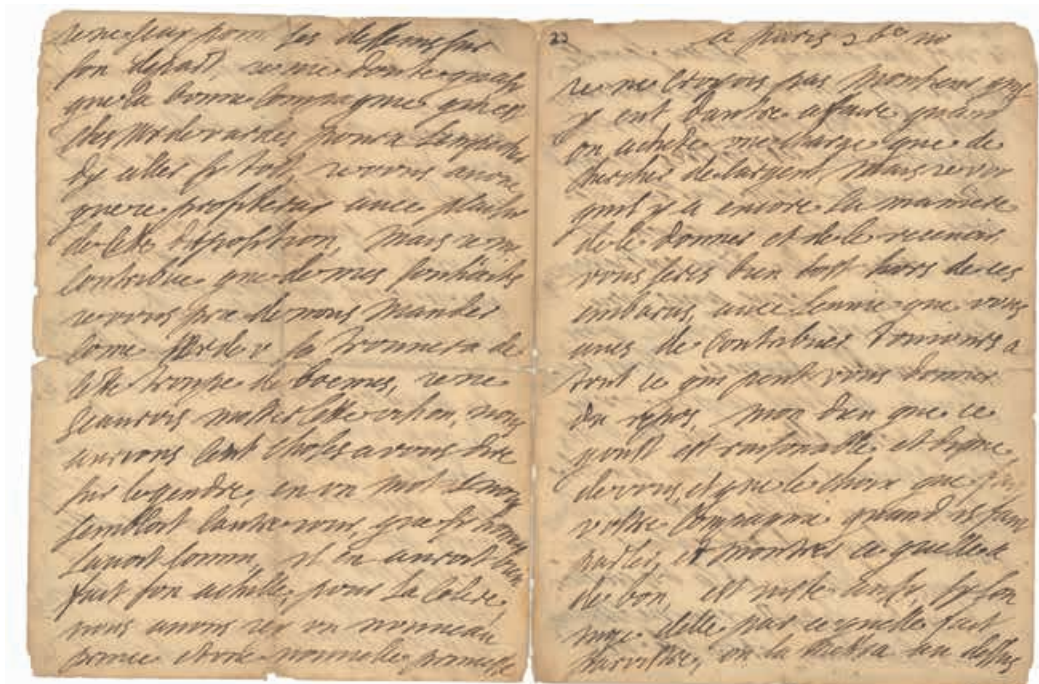 les desseins sur
son depart, je me doute quasy
que la bonne compagnie qui est
ches Mr de vardes poura lempecher
dy aller si tost, je vous avoue
que je profiteray avec plaisir
de cete disposition, mais je ny
contribue que de mes souhaits
je vous prie de nous mander
come Mr de v se trouvera de
cete troupe de boemes, je ne
saurois metre cete vision, nous
aurions cent choses a vous dire
sur le gendre, en un mot
sembloit lautre jour, que si
lavoit connu, il en auroit bien
fait son achille, pour la colere,
nous avons icy un nouveau
prince et une nouvelle princesse
23
a paris
je ne croyois pas
y eut dautre affaire quand
on achete une charge que de
chercher de largent, mais je voy
quil y a encore la maniere
de le donner et de le recevoir
vous seres bien tost hors de ces
embaras, avec lenvie que vous
aves de contribuer toujours a
tout ce qui peut vous donner
du repos, mon dieu que ce
goust est raisonable, et digne
de vous, et que le choix que
vostre compagnie quand il faut
parler, et montrer ce quelle a
de bon, est juste aussi, si lon
juge delle par ce quelle fait
on la metra au dessus